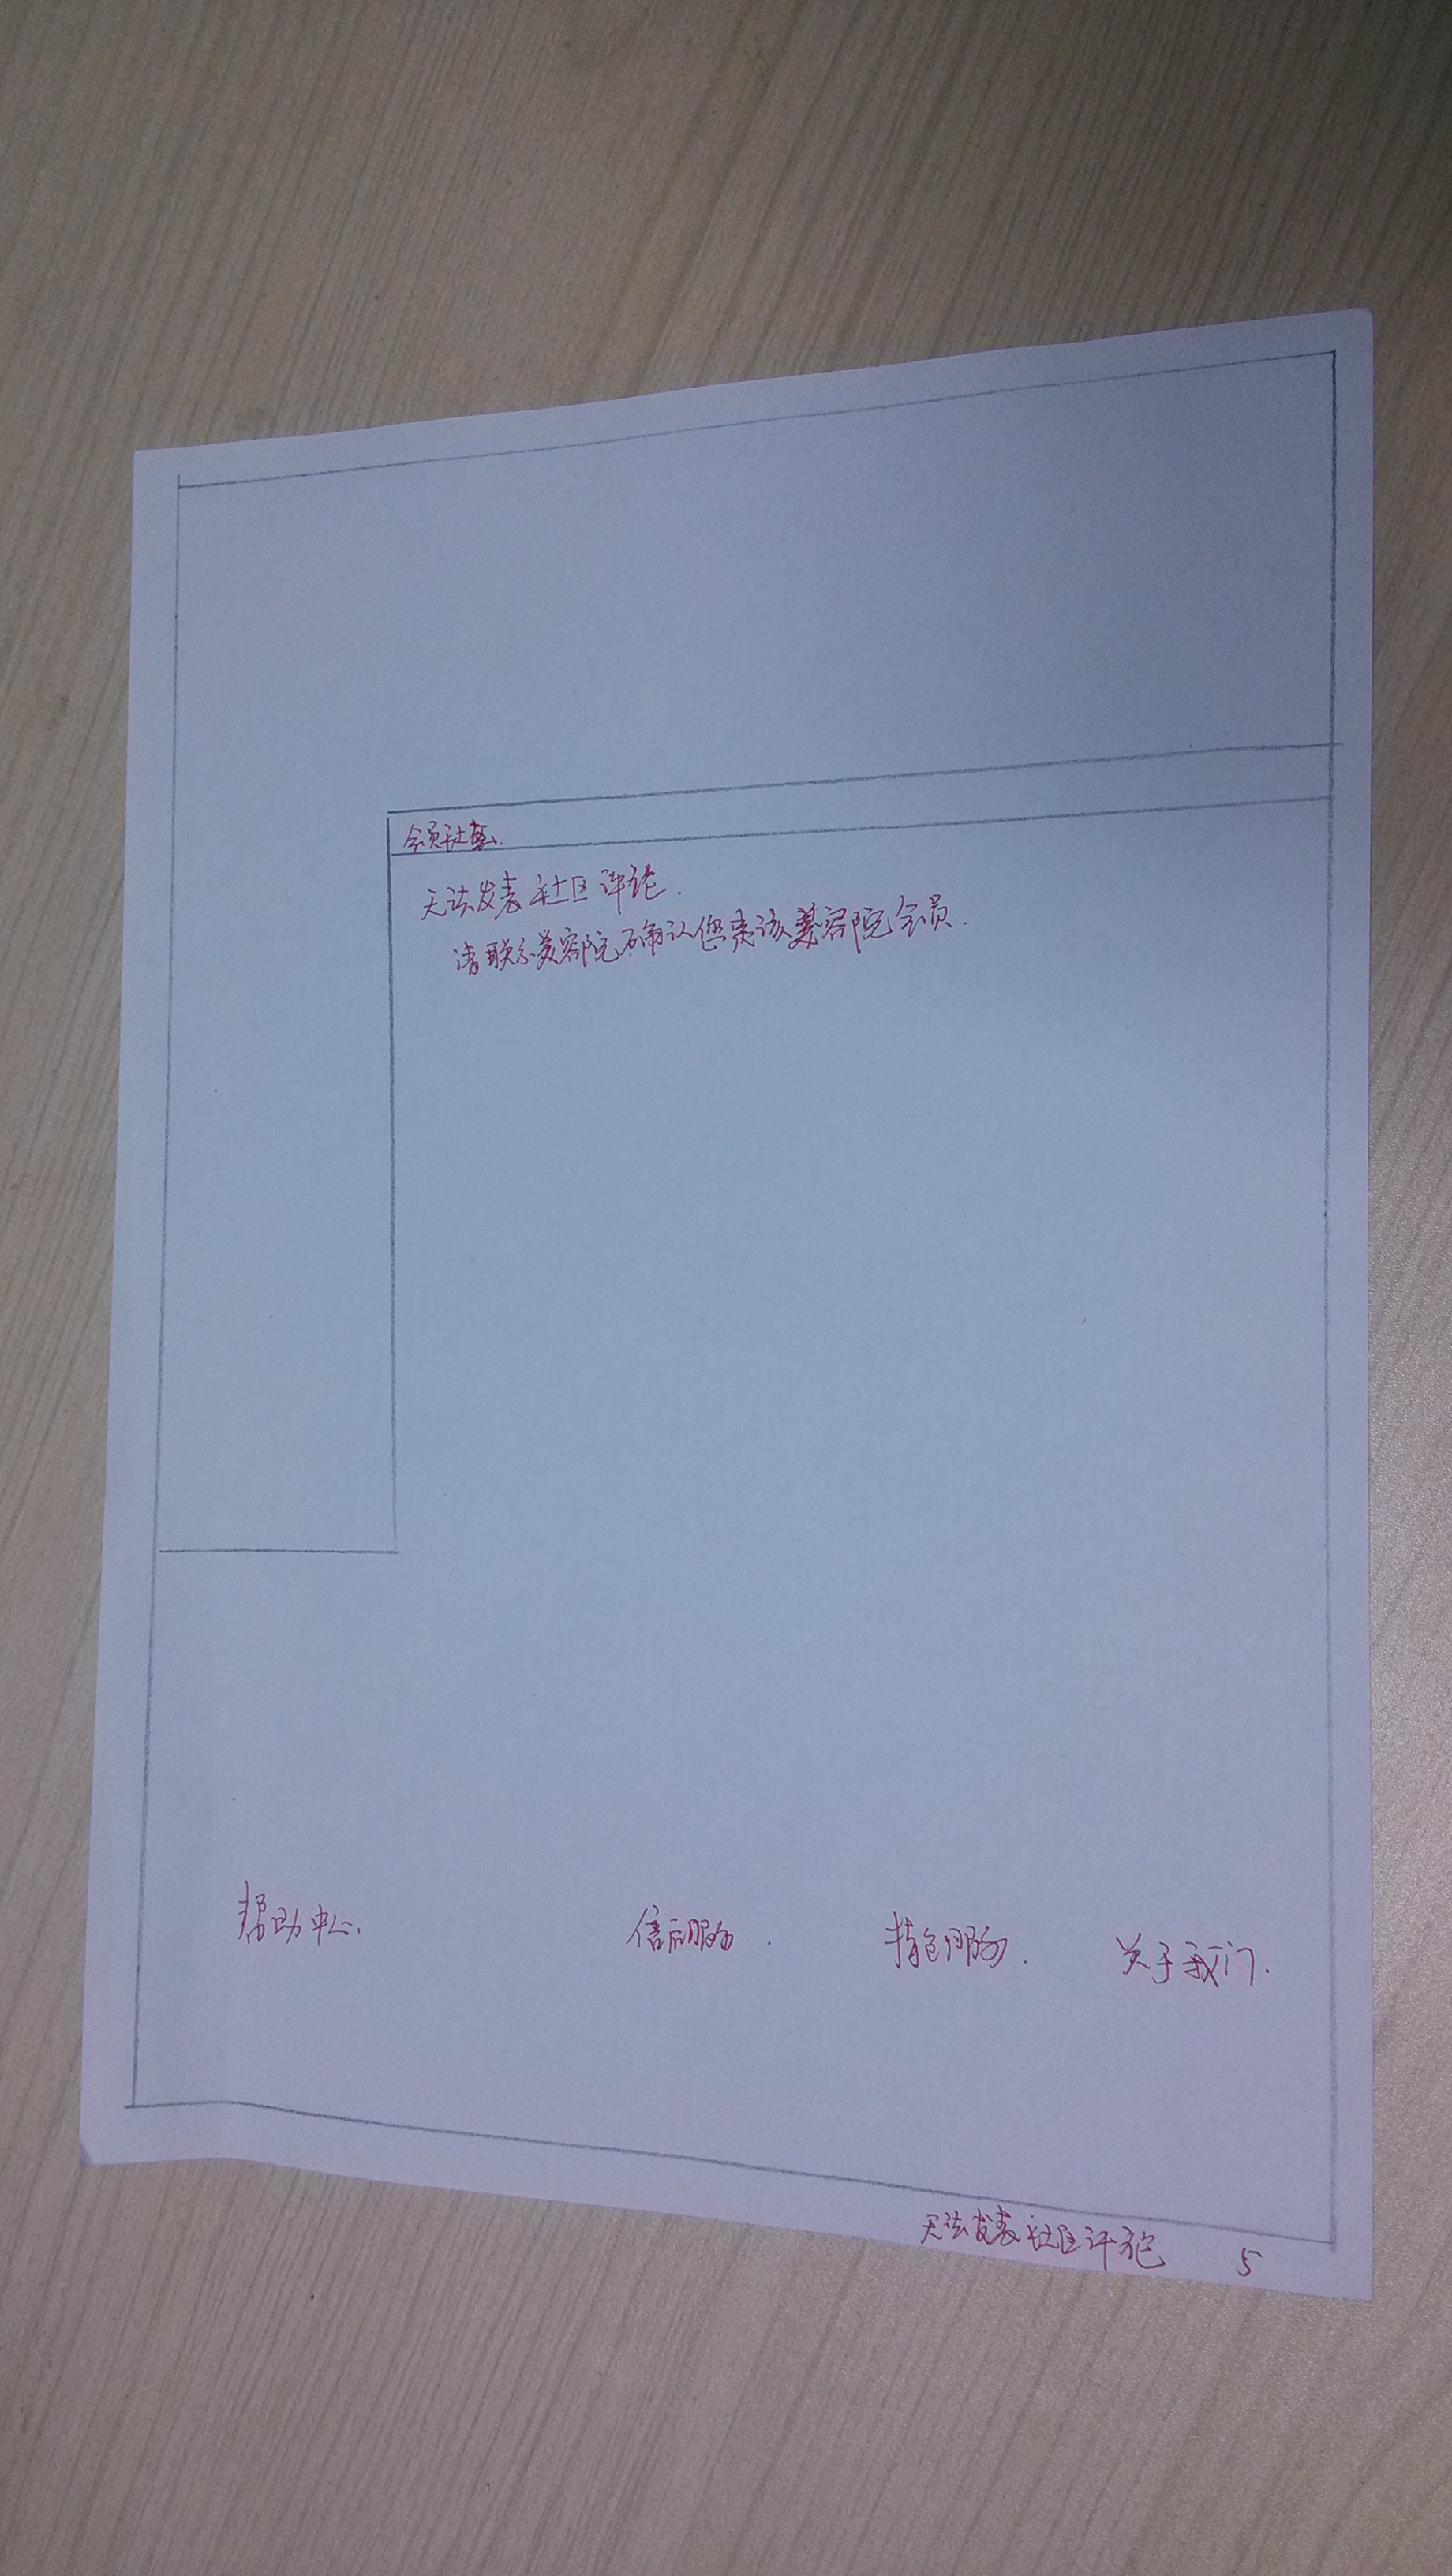 会员社区.
无法发表社区评论.
请联系美容院确认您是该美容院会员.
帮助中心.
售后服务.
特色服务.
关于我们.
无法发表社区评论 5